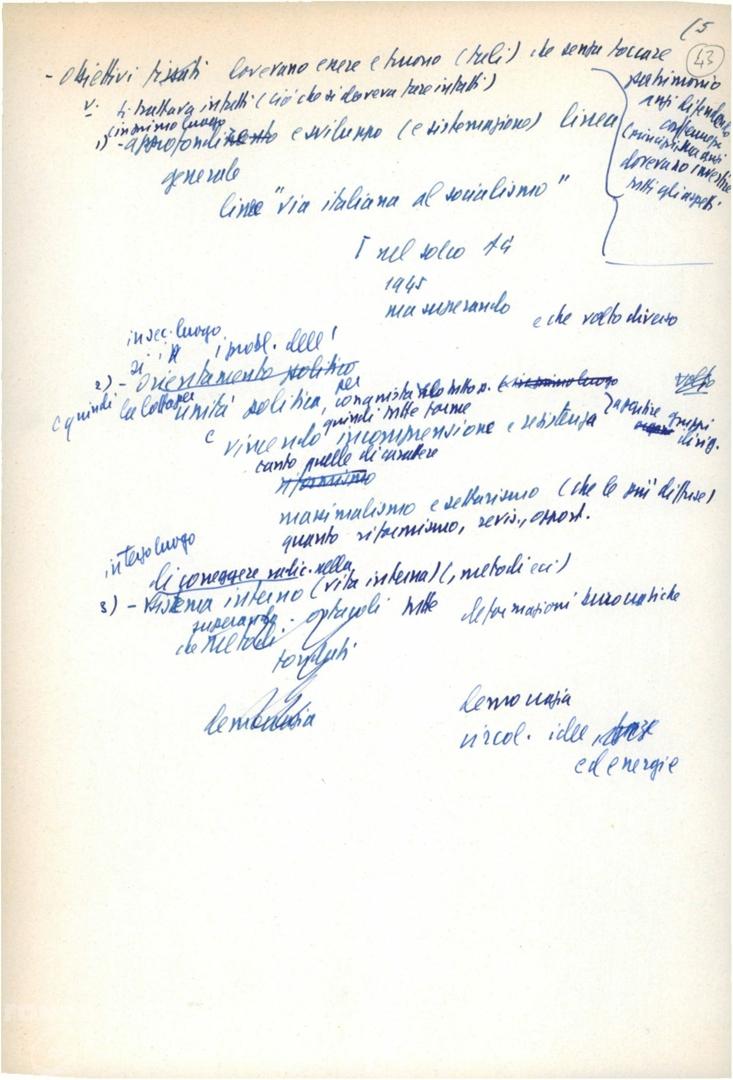 15
43
- Obiettivi fissati dovevano essere e furono (tali) che senza toccare
patrimonio
anzi difendendo
dovevano investire
tutti gli aspetti
si trattava infatti (ciò che si doveva fare infatti)
in primo luogo
1) - approfondimento e sviluppo (e sistemazione) linea
generale
linea "via italiana al socialismo"
nel solco
1945
ma superando e che volto diverso
in sec. luogo
probl. dell'
2) - orientamento politico
e quindi la lotta per unità politica, per conquista in primo luogo volto
quindi tutte forme
vincendo incomprensione e resistenza gruppi
dirig.
tanto quelle di carattere
riformismo
massimalismo e settarismo (che le più diffuse)
quanto riformismo, revis., opport.
in terzo luogo
di correggere radic. nella
3) - sistema interno (vita interna) (, metodi ecc)
superando ostacoli tutte deformazioni burocratiche
che metodi
democrazia
democrazia
circol. idee,
ed energie